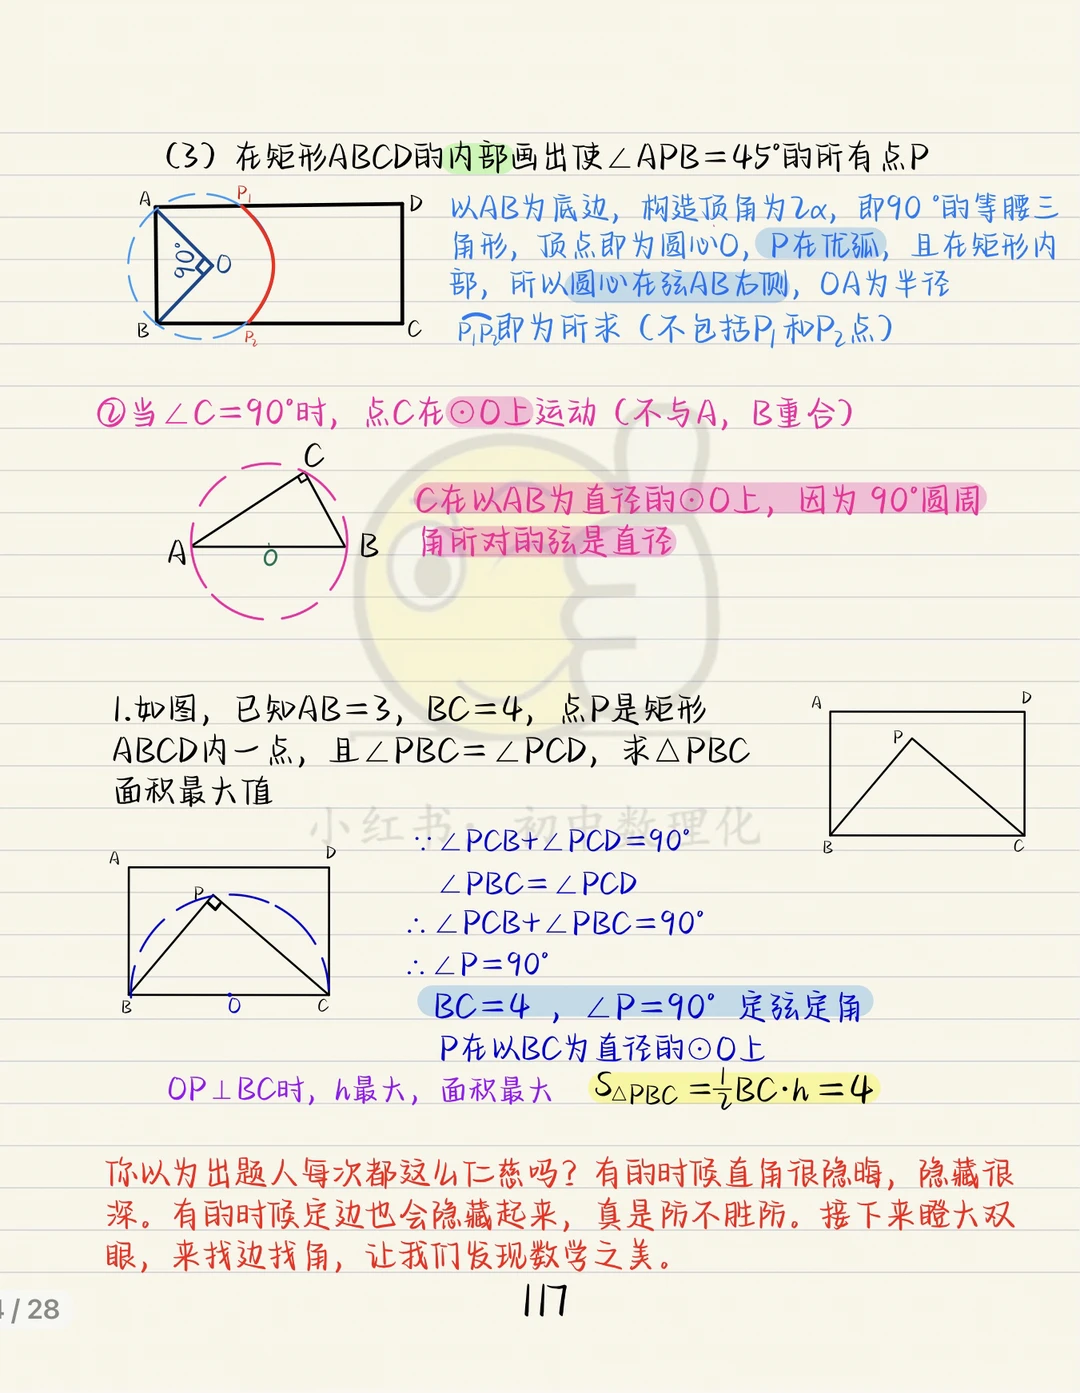 （3）在矩形ABCD的内部画出使∠APB=45°的所有点P
A
P₁
D
90°
O
B
P₂
C
以AB为底边，构造顶角为2α，即90°的等腰三
角形，顶点即为圆心O，P在优弧，且在矩形内
部，所以圆心在弦AB右侧，OA为半径
P₁P₂即为所求（不包括P₁和P₂点）
②当∠C=90°时，点C在⊙O上运动（不与A，B重合）
C
A
O
B
C在以AB为直径的⊙O上，因为90°圆周
角所对的弦是直径
1.如图，已知AB=3，BC=4，点P是矩形
ABCD内一点，且∠PBC=∠PCD，求△PBC
面积最大值
A
D
P
B
C
小红书：初中数理化
A
D
P
B
O
C
∵∠PCB+∠PCD=90°
∠PBC=∠PCD
∴∠PCB+∠PBC=90°
∴∠P=90°
BC=4，∠P=90° 定弦定角
P在以BC为直径的⊙O上
OP⊥BC时，h最大，面积最大 S△PBC=½BC·h=4
你以为出题人每次都这么仁慈吗？有的时候直角很隐晦，隐藏很
深。有的时候定边也会隐藏起来，真是防不胜防。接下来瞪大双
眼，来找边找角，让我们发现数学之美。
117
/ 28